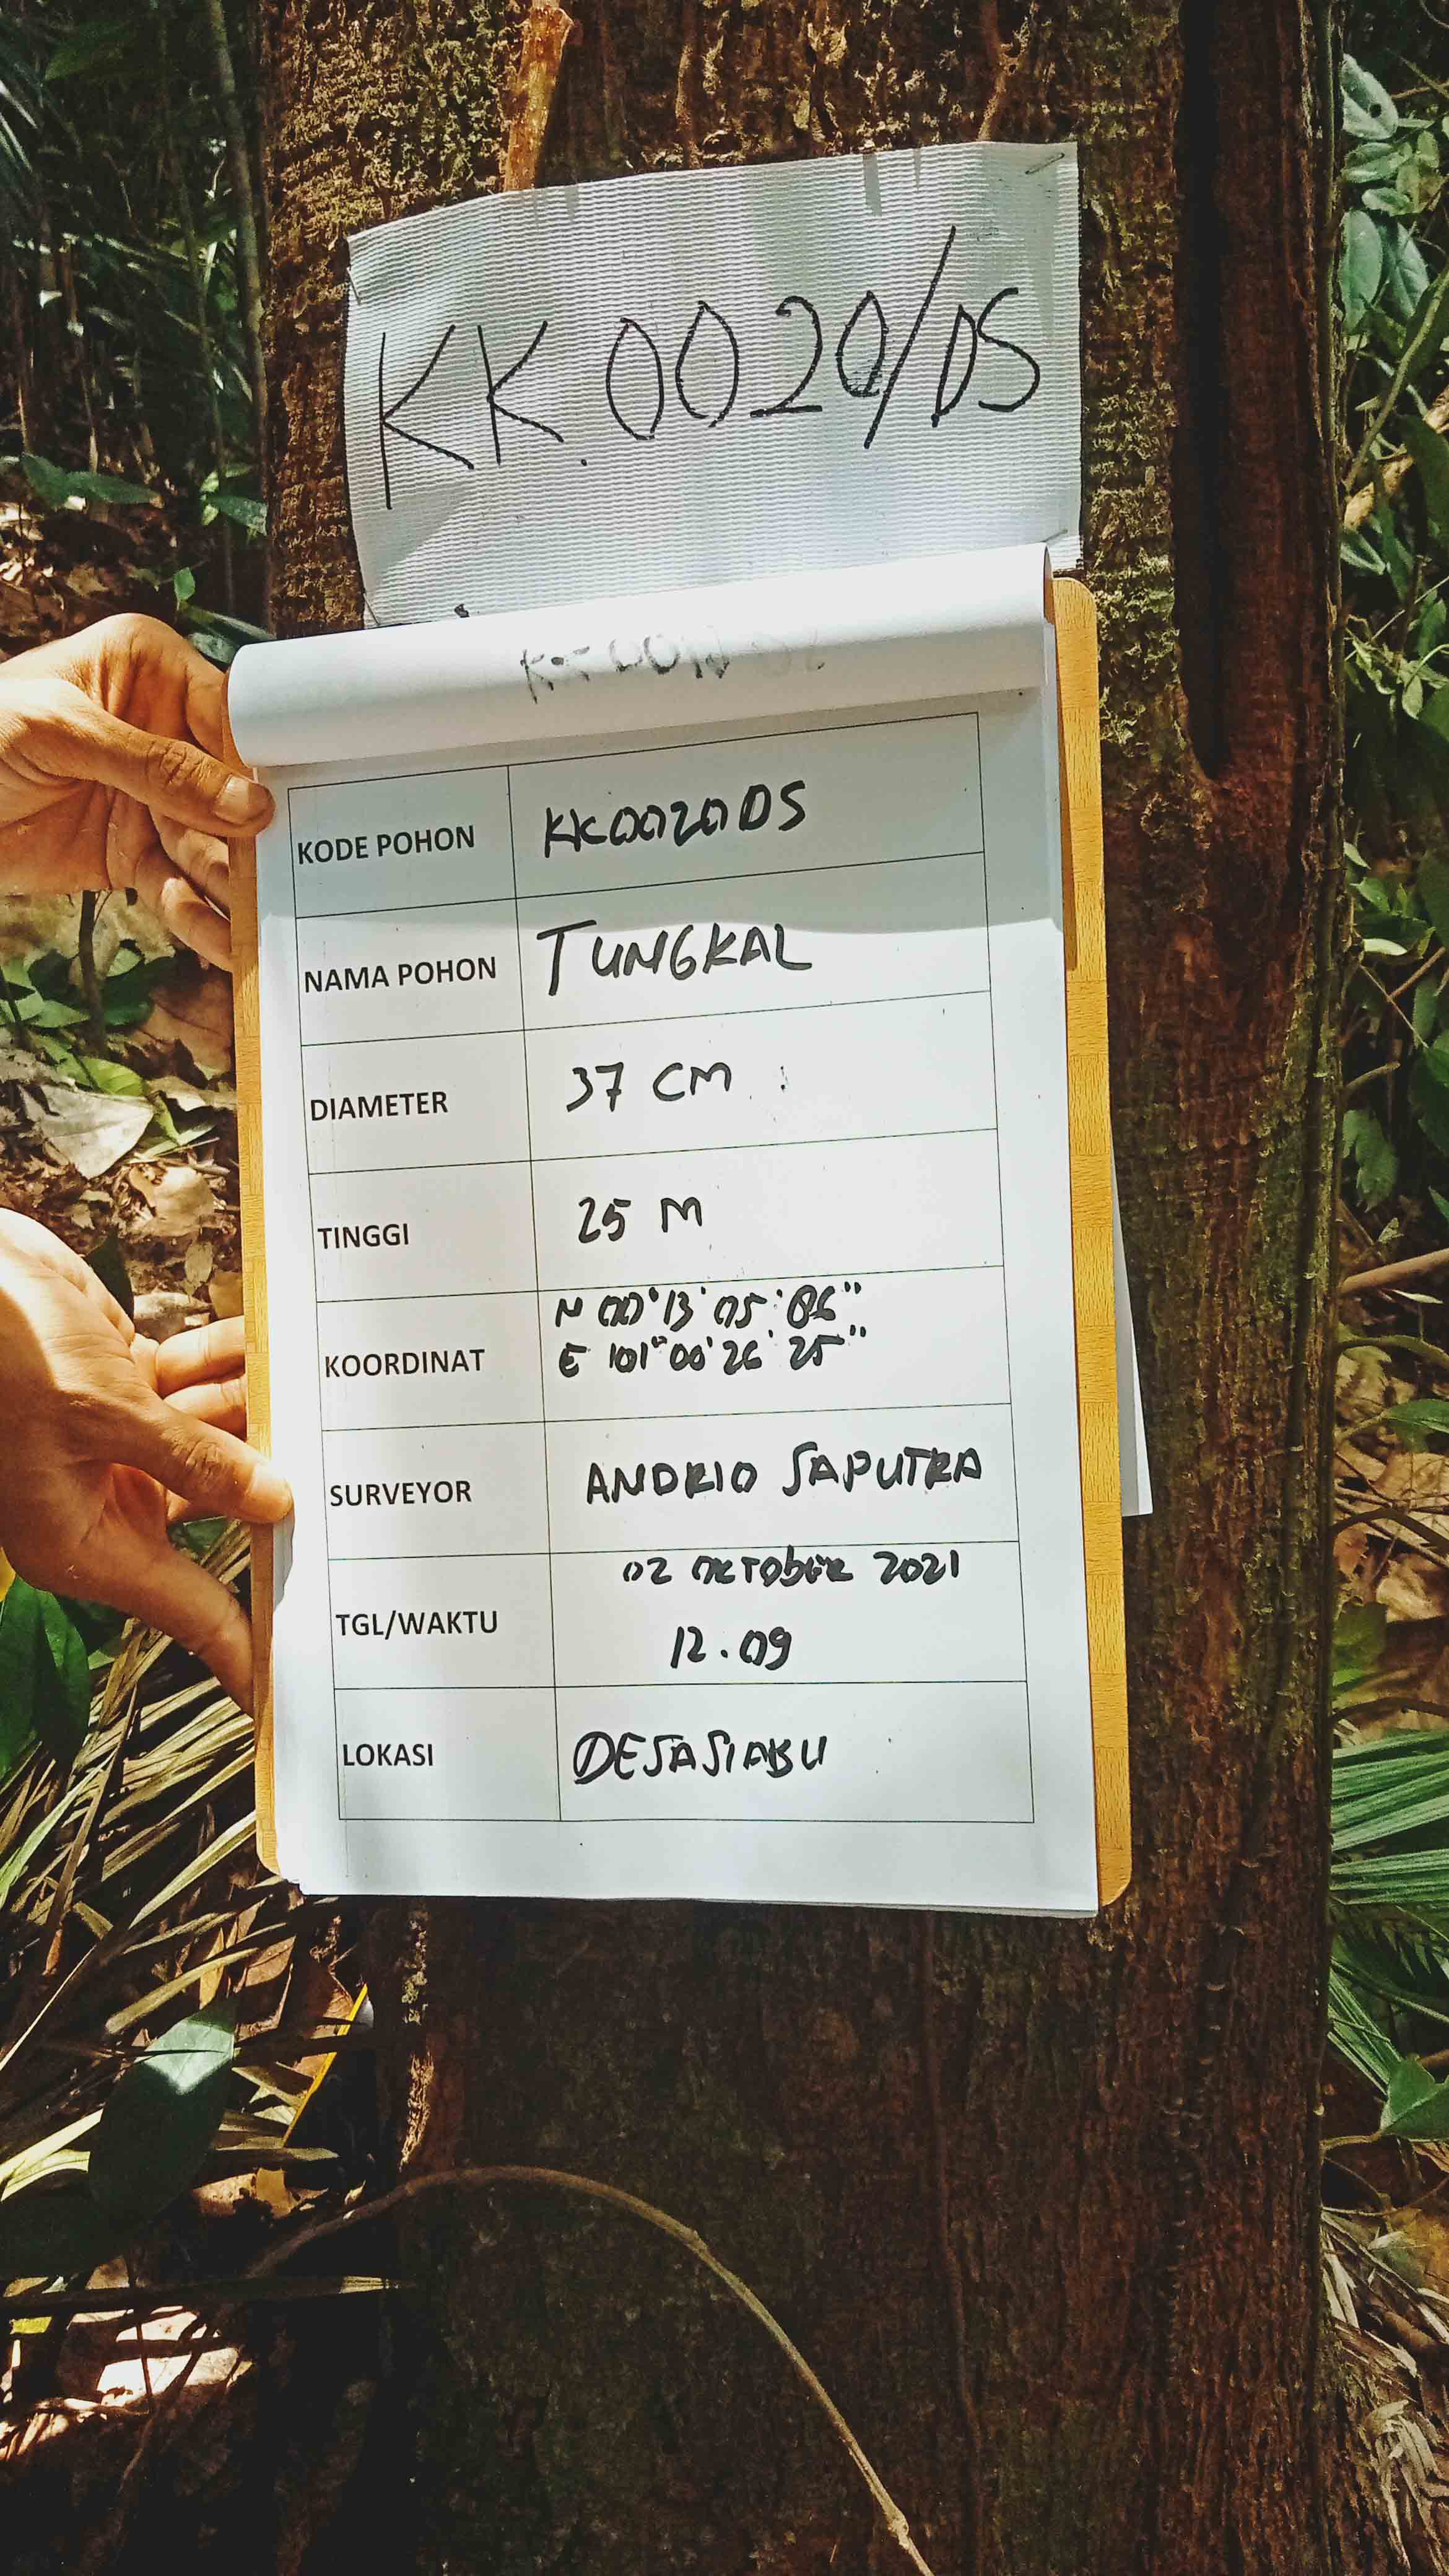 KK.0020/DS
KODE POHON KK0020DS
NAMA POHON TUNGKAL
DIAMETER 37 CM
TINGGI 25 M
KOORDINAT N 00°13'05'86"
E 101°00'26'25"
SURVEYOR ANDRIO SAPUTRA
TGL/WAKTU 02 OKTOBER 2021
12.09
LOKASI DESA SIABU